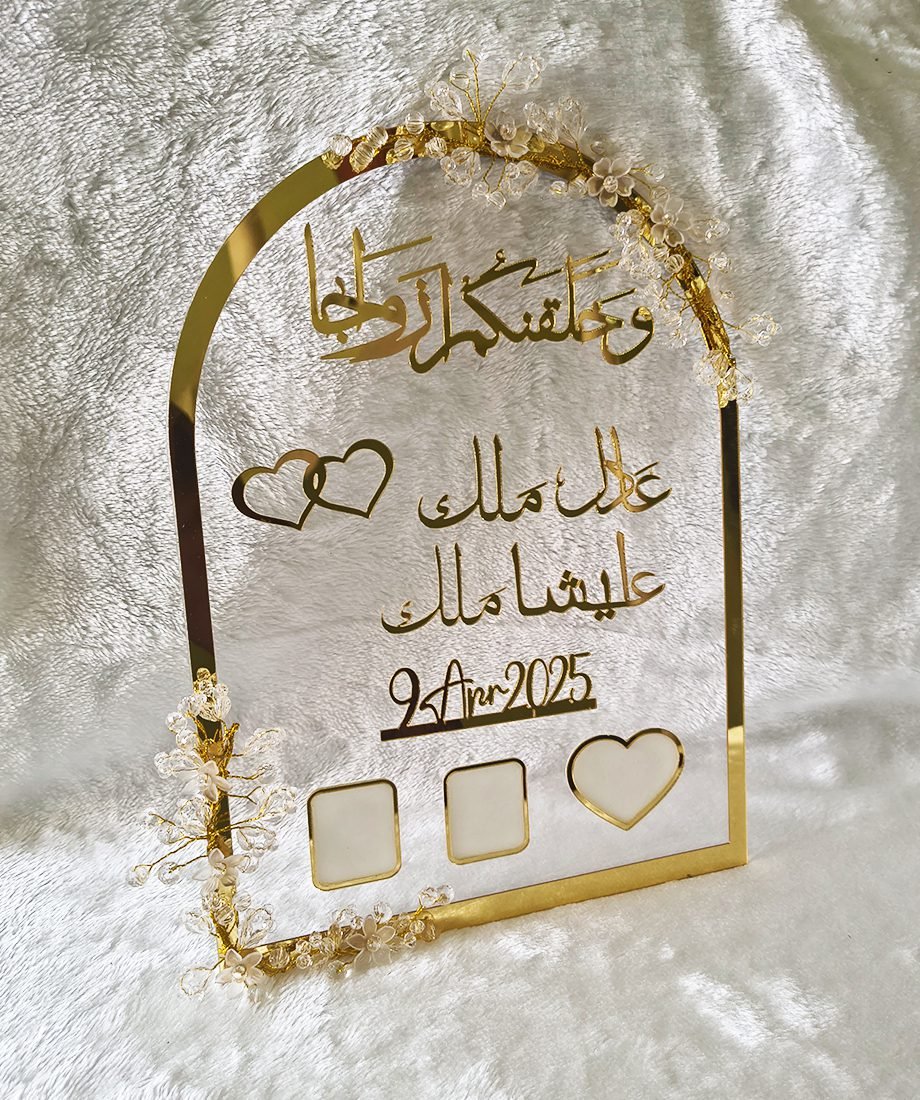 وَخَلَقْنَكُمْ أَزْوَاجًا
عادل ملك
عايشا ملك
2 Apr 2025